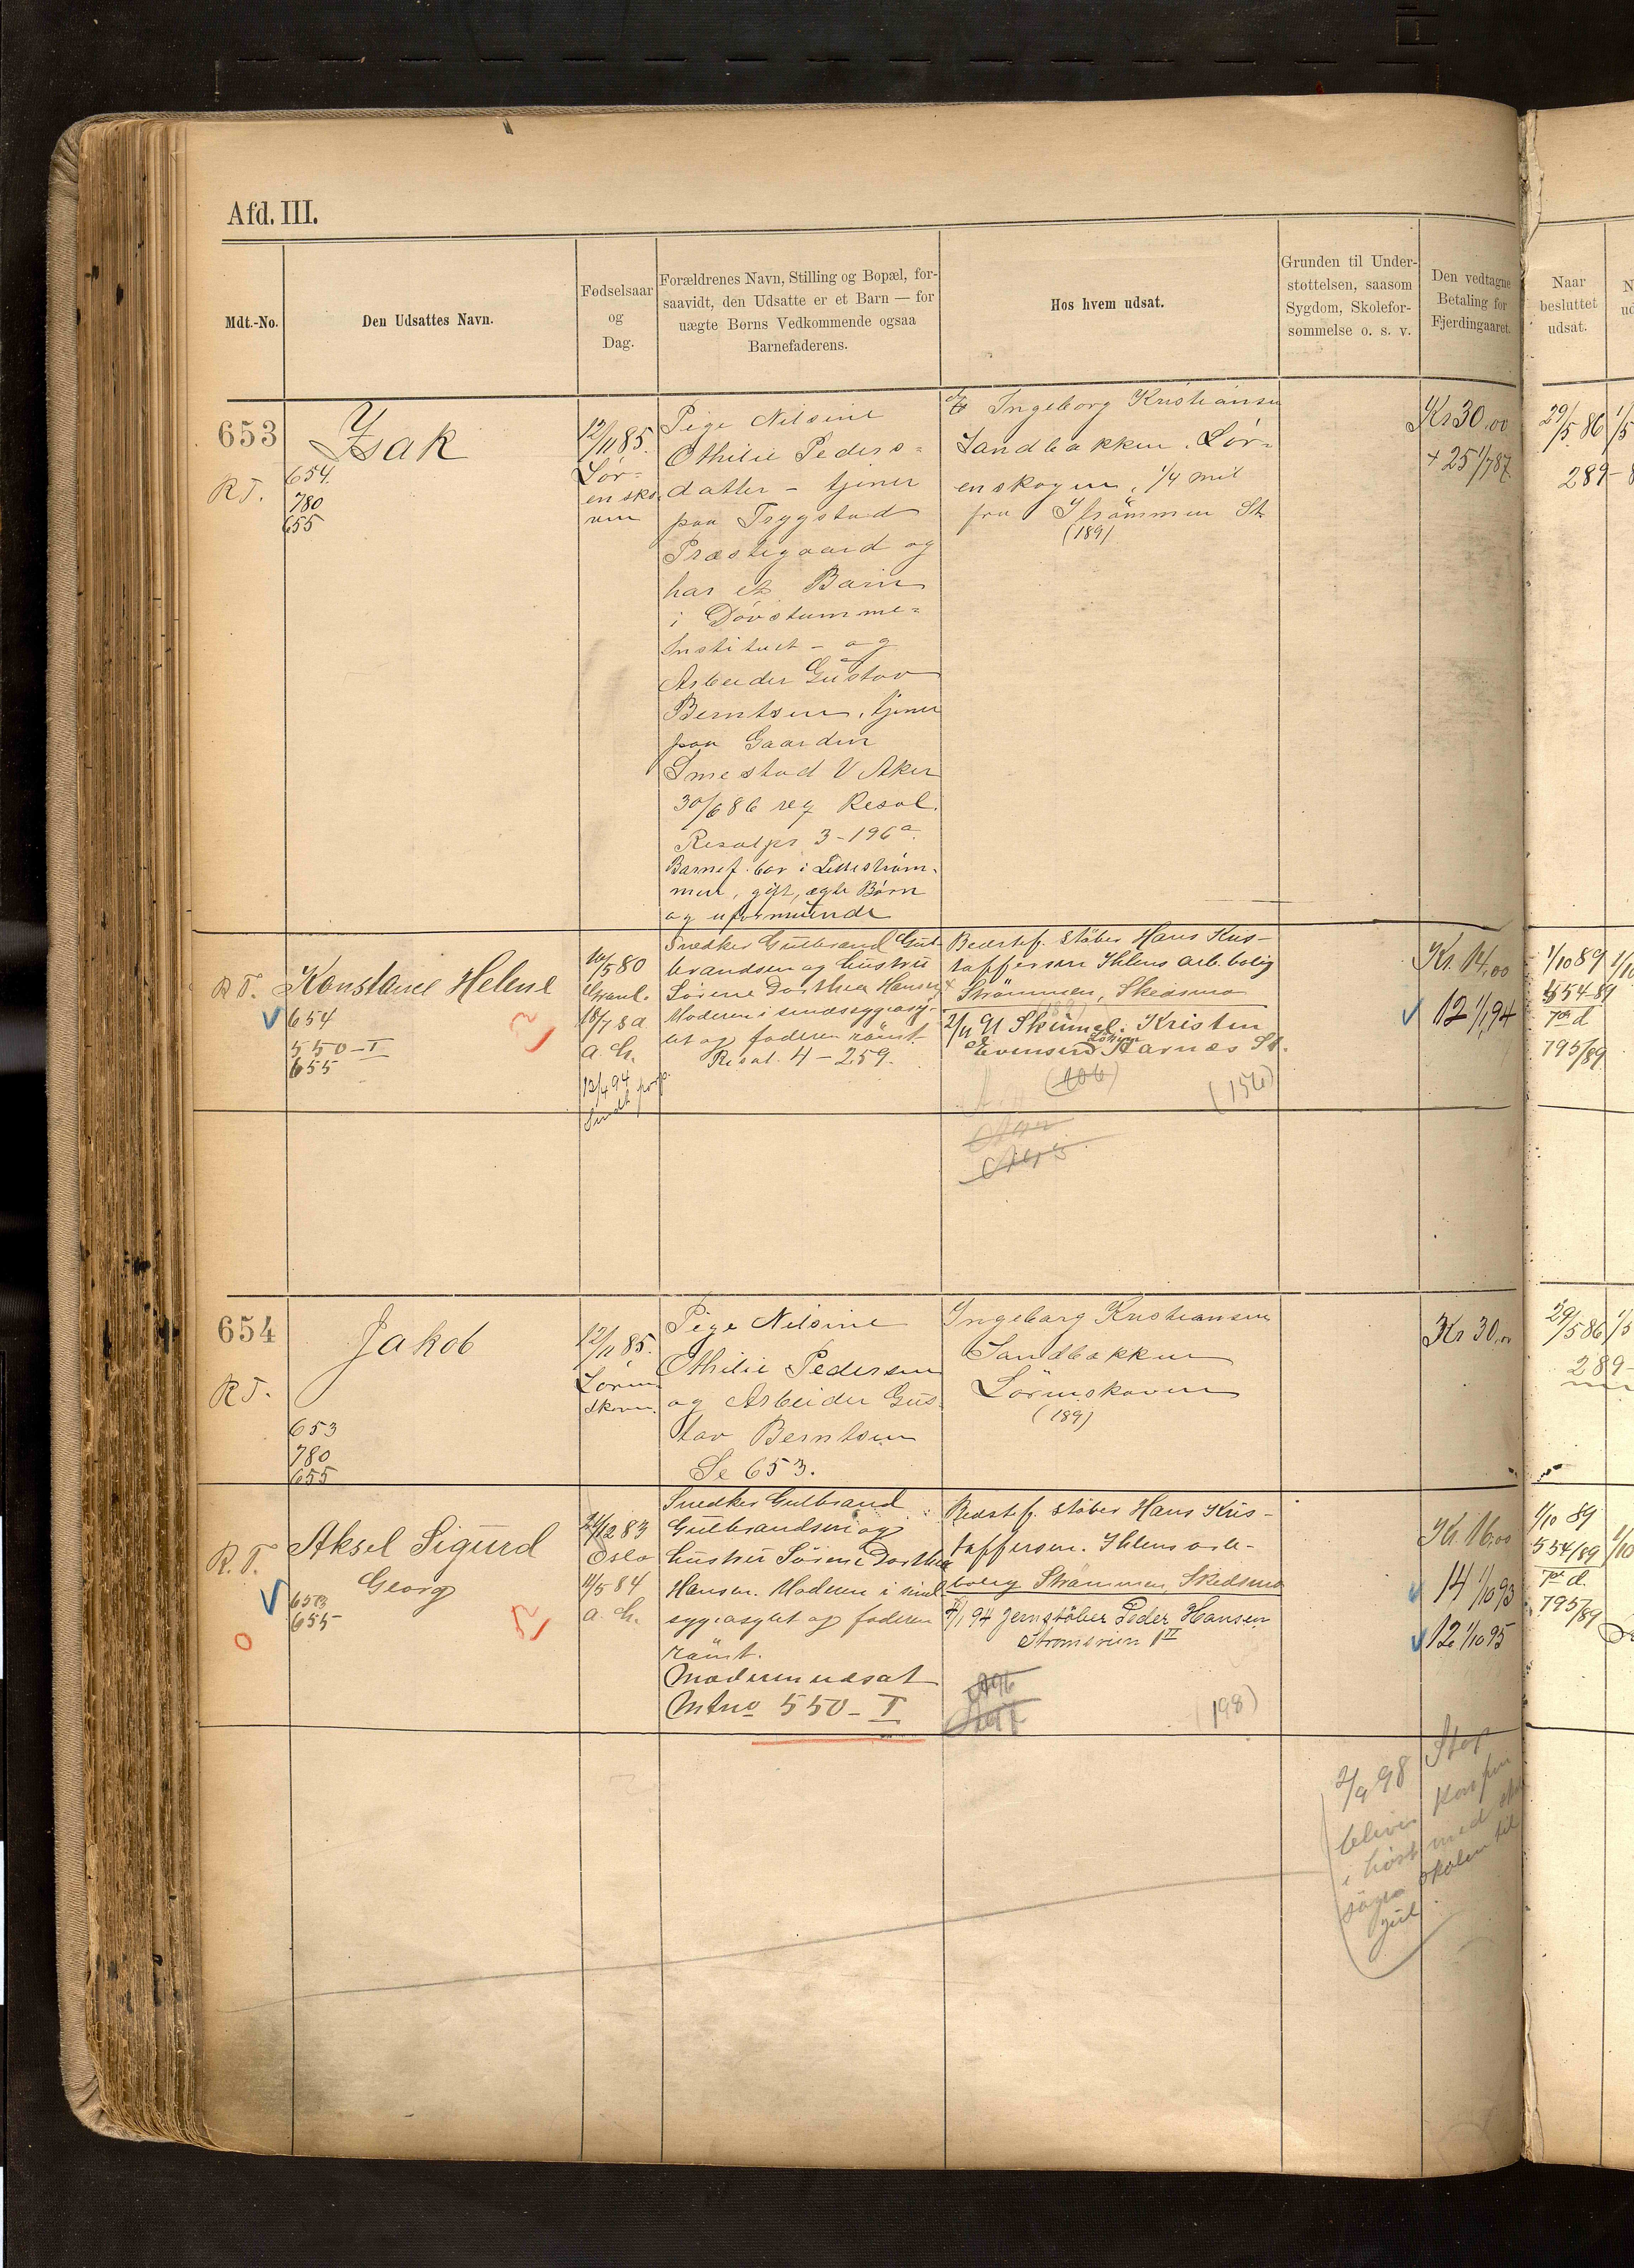 Afd. III.
Mdt.-No.
Den Udsattes Navn.
Fødselsaar
og
Dag.
Forældrenes Navn, Stilling og Bopæl, for-
saavidt, den Udsatte er et Barn — for
uægte Børns Vedkommende ogsaa
Barnefaderens.
Hos hvem udsat.
Grunden til Under-
støttelsen, saasom
Sygdom, Skolefor-
sømmelse o. s. v.
Den vedtagne
Betaling for
Fjerdingaaret.
Naar
besluttet
udsat.
653
R T.
Isak
654.
780
655
12/11 85.
Lör-
ensko
ven
Pige Nilsine
Othilie Peders-
datter - tjener
paa Trygstad
Præstegaard og
har et Barn
i Døvstumme-
Institut - og
Arbeider Gustav
Berntsen, tjener
paa Gaarden
Smestad V Aker
30/6 86 reg Resol.
Resolpr 3-196a.
Barnef. bor i Lillestrøm-
men, gift, ægte Børn
og uformuende
Ingeborg Kristiansen
Sandbakken, Lör-
enskogen, 1/4 mil
fra Strömmen St
(189)
Kr 30,00
+ 25 1/7 87
29/5 86
289
R T.
Konstance Helene
654
550-I
655
10/5 80
18/7 80
a. Ch.
13/4 94
Snedker Gulbrand Gul-
brandsen og hustru
Sörine Dorthea Hansen
Moderen i sindssygeasy-
let og faderen römt
Resol. 4-259.
Bedstef. støber Hans Kris-
toffersen Ihlens arb. bolig
Strømmen, Skedsmo
(189)
2/11 91 Skinnel. Kristen
Evensen Aarnæs St.
(106)
(156)
Kr. 14,00
12 1/1 94
1/10 89
554-89
795/89
654
R T.
Jakob
653
780
655
12/11 85.
Lören
skoven
Pige Nilsine
Othilie Pedersen
og Arbeider Gus-
tav Berntsen
Se 653.
Ingeborg Kristiansen
Sandbakken
Lörenskoven
(189)
Kr 30,00
29/5 86
289-
R. T.
Aksel Sigurd
Georg
653
655
21/12 83
Oslo
11/5 84
a. Ch.
Snedker Gulbrand
Gulbrandsen og
hustru Sörine Dorthea
Hansen. Moderen i sind
sygeasylet og faderen
römt.
Moderen udsat
Mtno 550-I
Bedstef. støber Hans Kris-
toffersen. Ihlens arb-
bolig Strømmen, Skedsmo
1/1 94 Jernstøber Peder Hansen
Strömsvien 1II
(198)
Kr. 16,00
14 1/10 93
12 1/10 95
1/10 89
554/89
795/89
2/9 98
Stop
bliver
i høst med
skolen til
jul